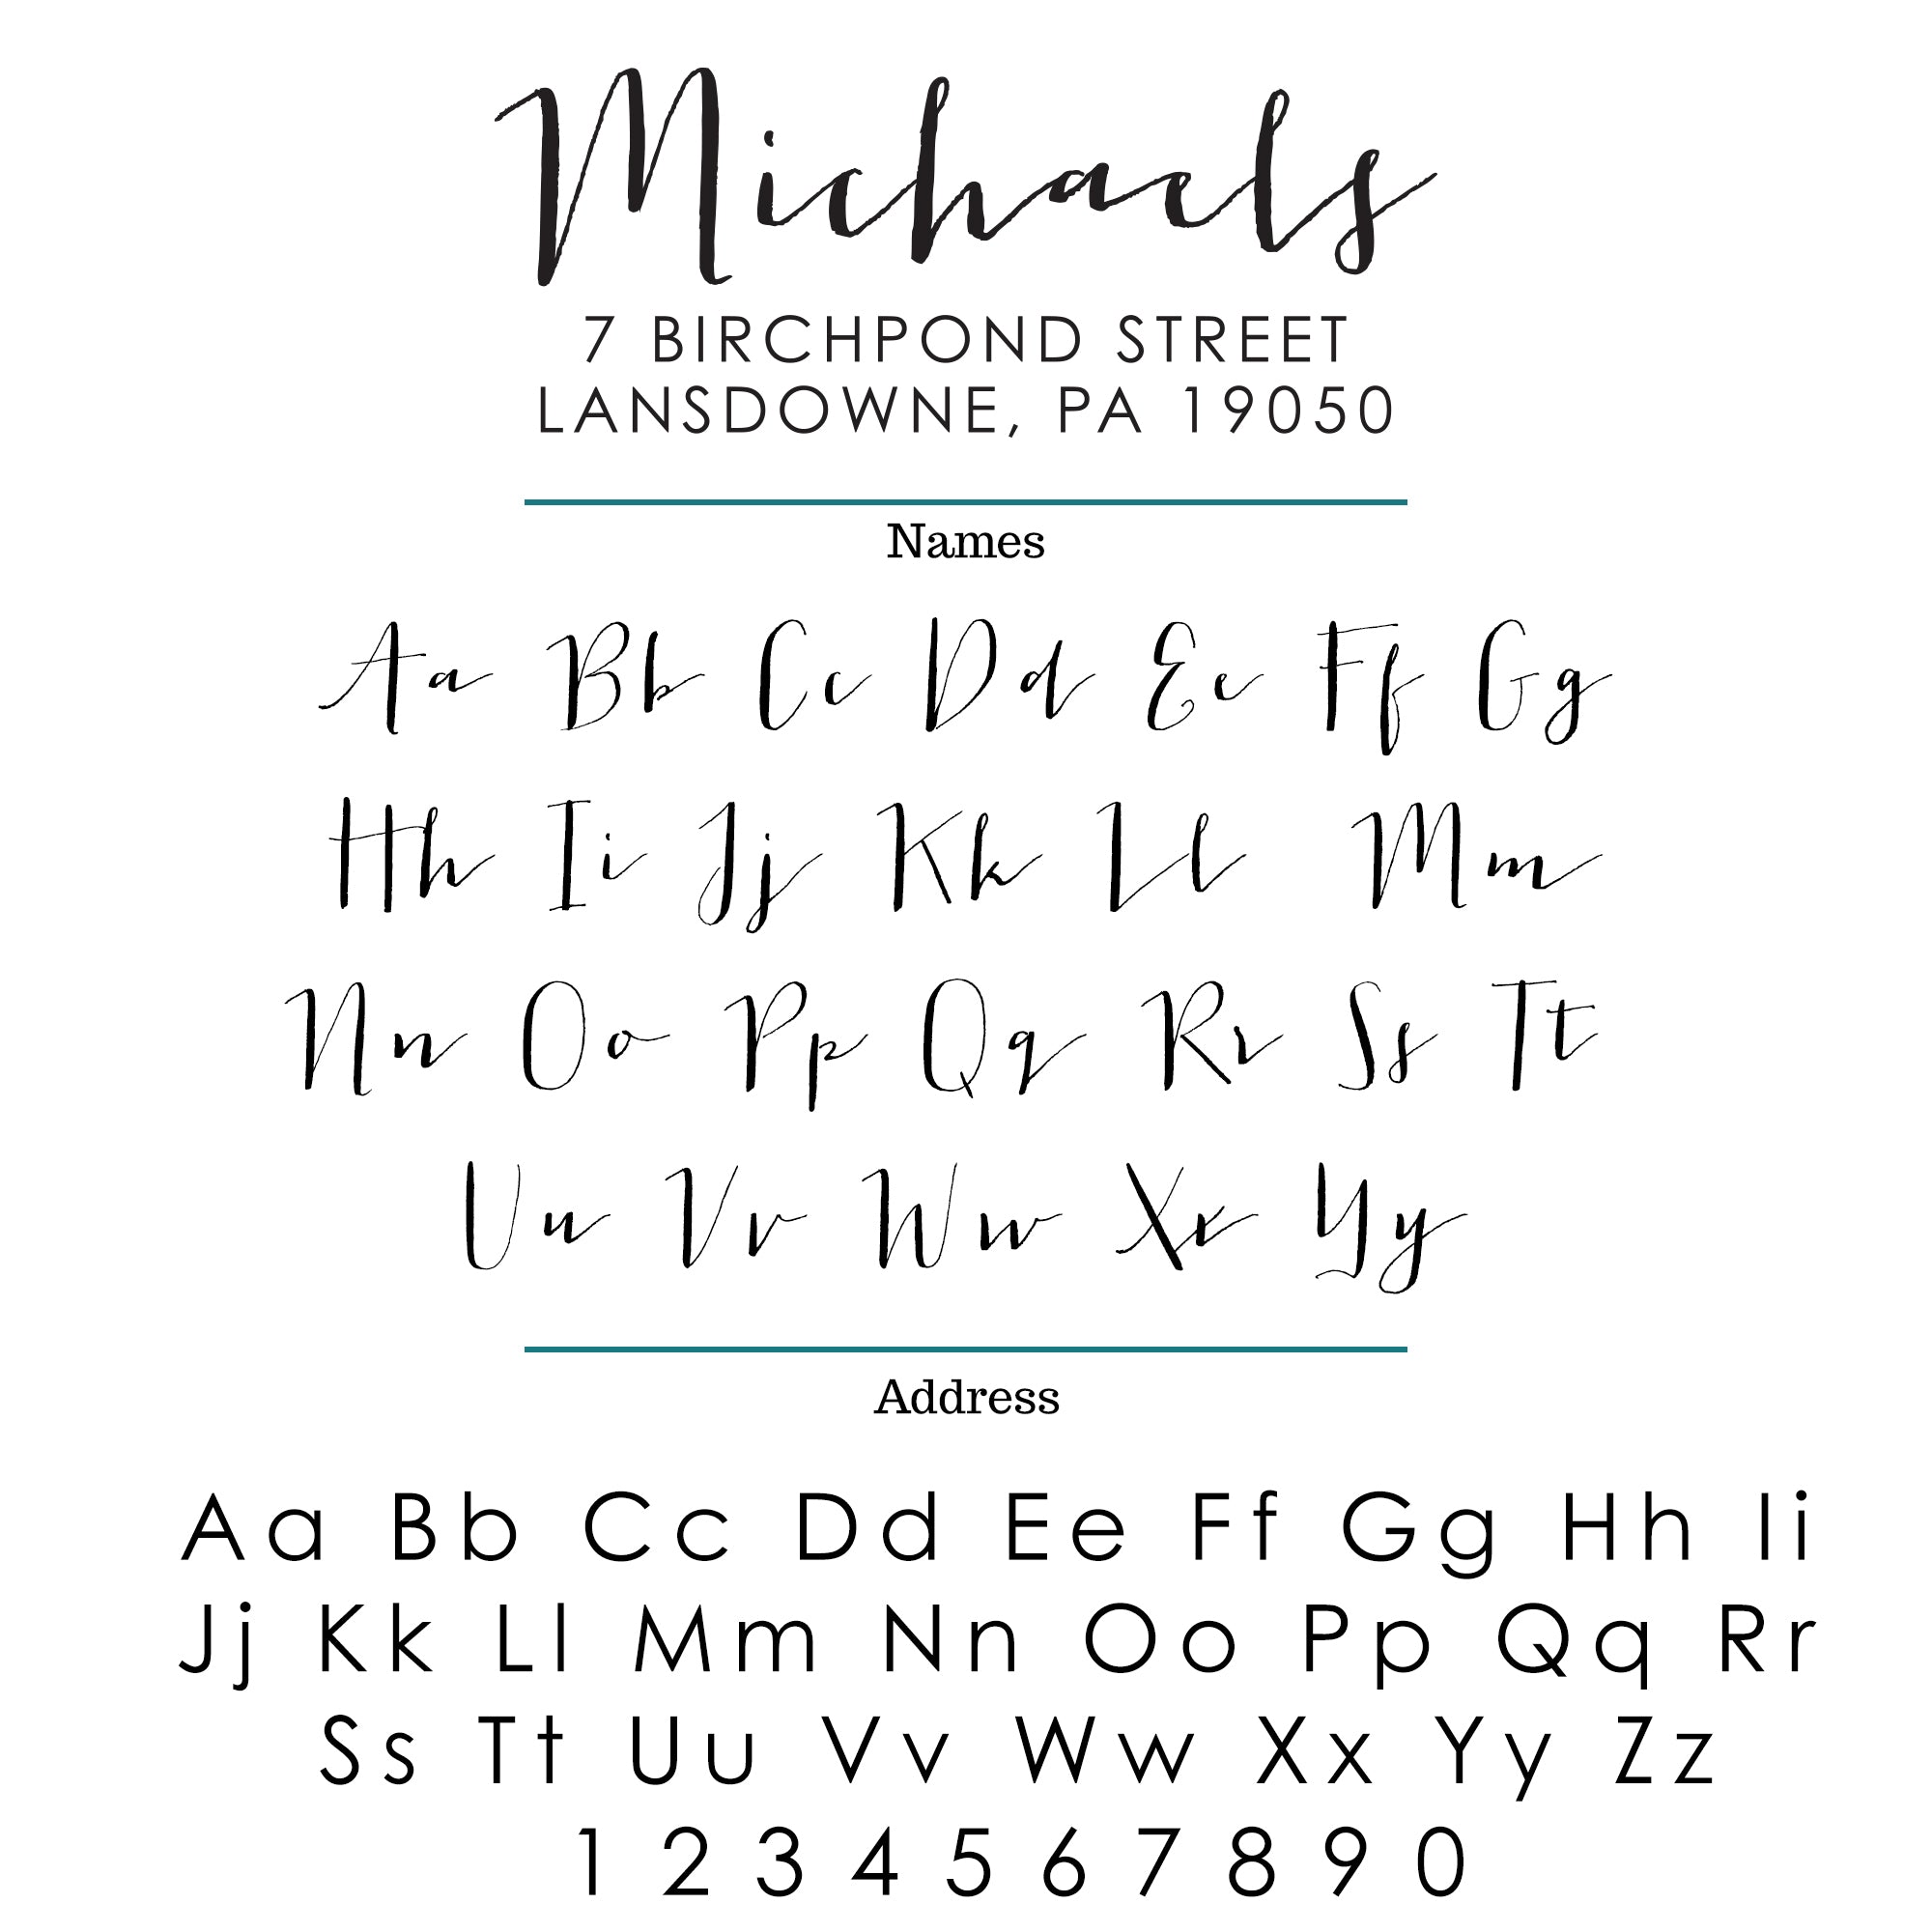 Michaels
7 BIRCHPOND STREET
LANSDOWNE, PA 19050
Names
Aa Bb Cc Dd Ee Ff Gg
Hh Ii Jj Kk Ll Mm
Nn Oo Pp Qq Rr Ss Tt
Uu Vv Ww Xx Yy
Address
Aa Bb Cc Dd Ee Ff Gg Hh Ii
Jj Kk Ll Mm Nn Oo Pp Qq Rr
Ss Tt Uu Vv Ww Xx Yy Zz
1 2 3 4 5 6 7 8 9 0